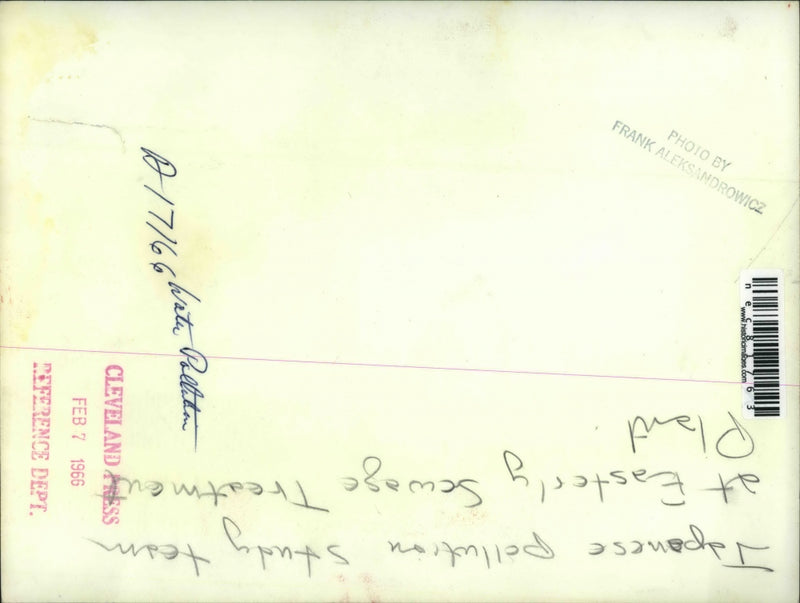 Japanese pollution study team
at Easterly Sewage Treatment
Plant.
Water Pollution
CLEVELAND PRESS
FEB 7 1966
REFERENCE DEPT.
PHOTO BY
FRANK ALEKSANDROWICZ
www.historicimages.com